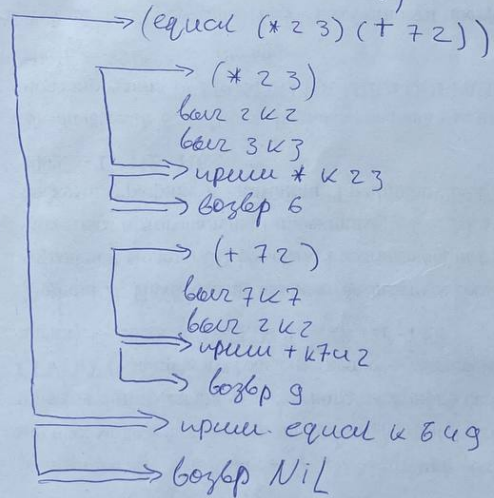 (equal (* 2 3) (+ 7 2))
(* 2 3)
выч 2 к 2
выч 3 к 3
прим * к 2 3
возвр 6
(+ 7 2)
выч 7 к 7
выч 2 к 2
прим + к 7 и 2
возвр 9
прим. equal к 6 и 9
возвр NiL